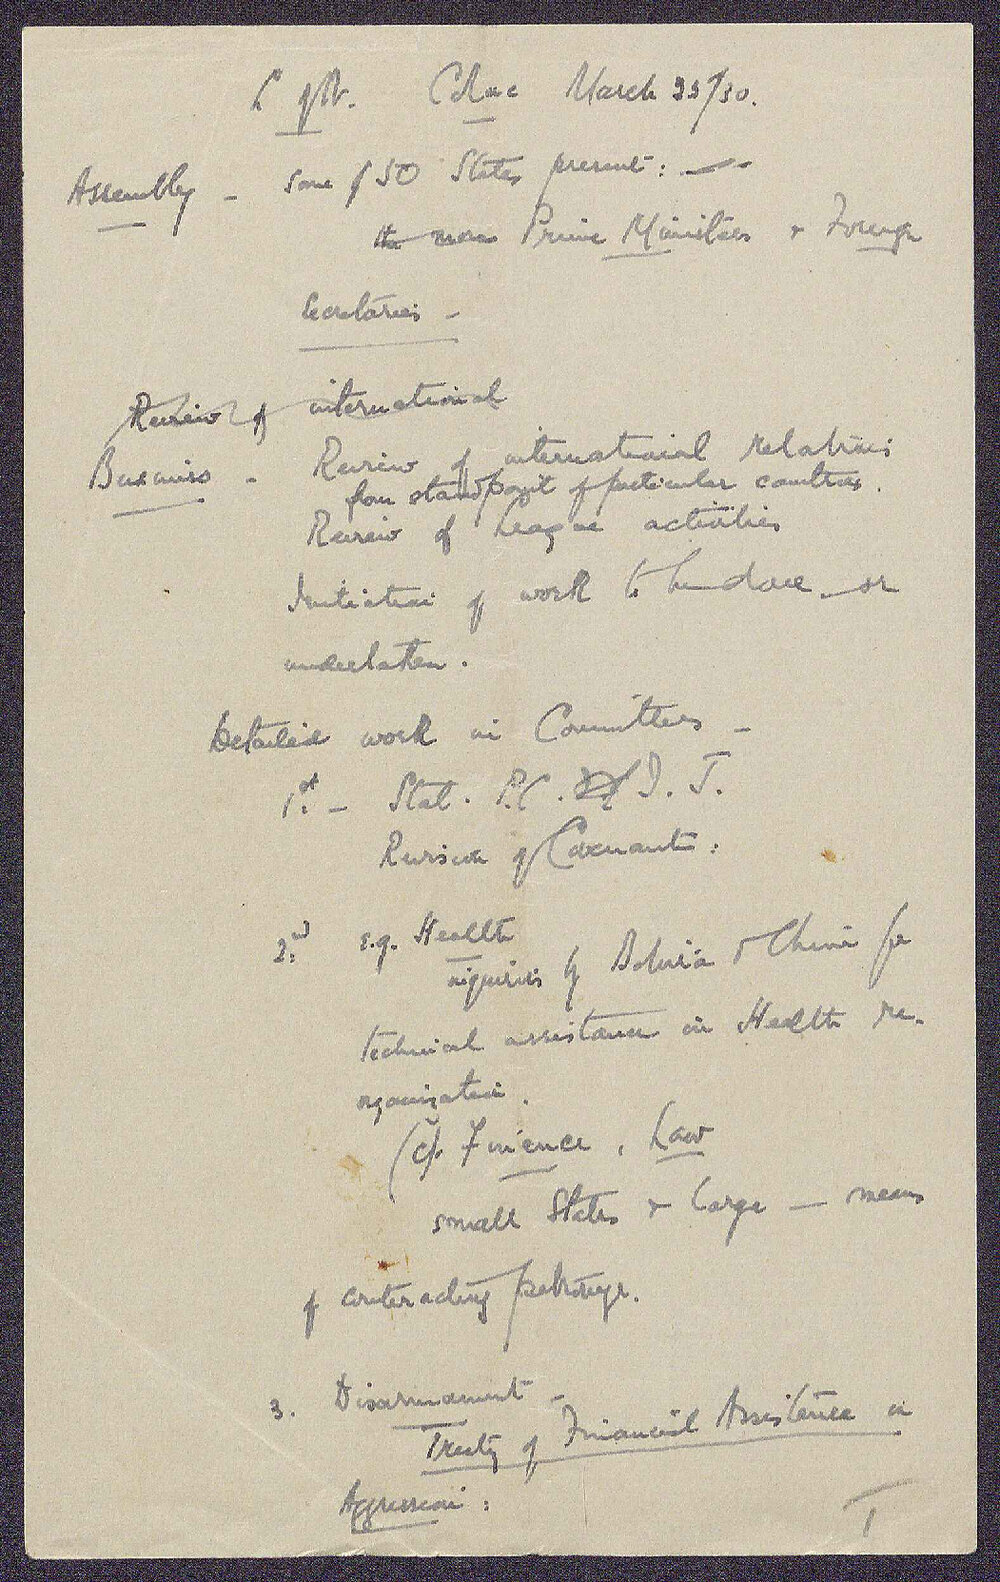 L of N. Colac March 25/30.
Assembly - some of 50 States present: —
Prime Ministers & Foreign
Secretaries -
Review of international
Business - Review of international relations
from standpoint of particular countries.
Review of League activities
Initiation of work to be done or
undertaken.
Detailed work in Committees -
1st. - Stat. P.C. of I. J.
Revision of Covenant:
2nd. e.g. Health
inquiries by Bolivia & China for
technical assistance in Health re-
organization.
(cf. Finance, Law
small States & large — means
of counteracting patronage.
3. Disarmament -
Treaty of Financial Assistance in
Aggression:
I